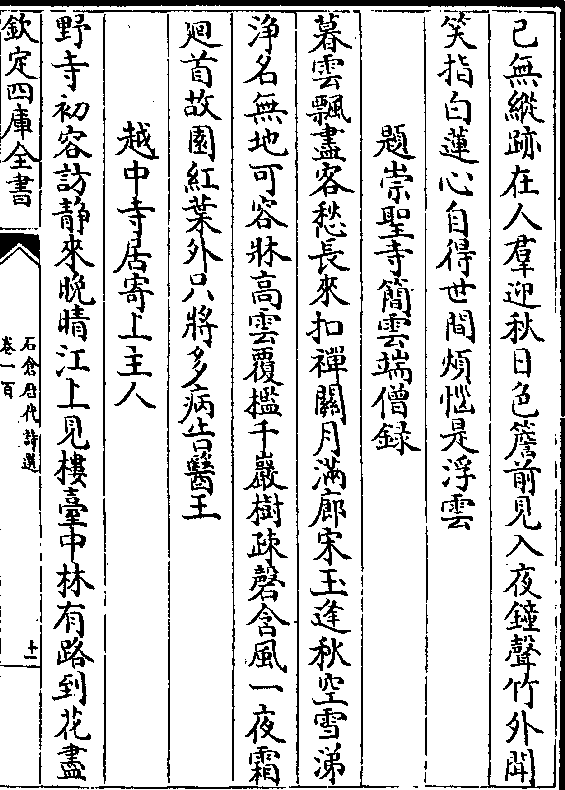 已無縱跡在人羣迎秋日色簷前見入夜鐘聲竹外聞
笑指白蓮心自得世間煩惱是浮雲
題崇聖寺簡雲端僧録
暮雲飄盡客愁長來扣禪關月滿廊宋玉逢秋空雪涕
浄名無地可容牀高雲覆檻千巖樹疎磬含風一夜霜
廻首故園紅葉外只將多病告醫王
越中寺居寄上主人
野寺初容訪静來晚晴江上見樓臺中林有路到花盡
欽定四庫全書
石倉歴代詩選
卷一百
十一